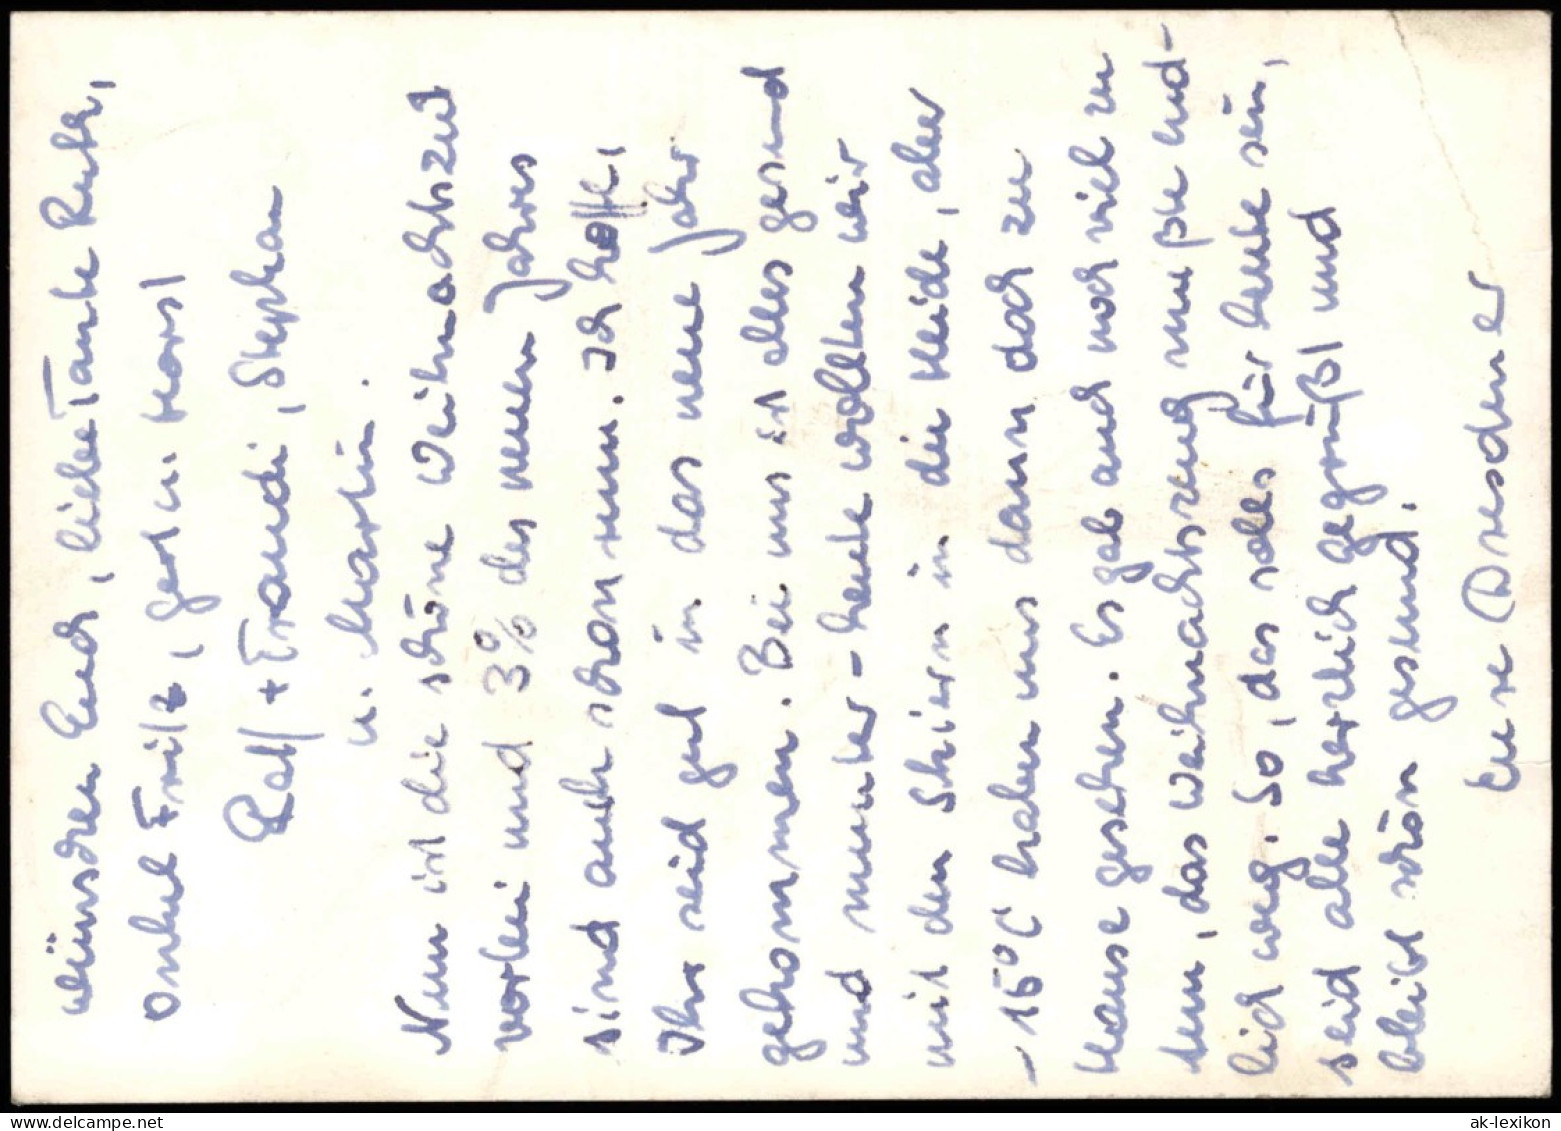 wünschen Euch, liebe Tante Ruth,
Onkel Fritz, Gert u. Horst
Ralf + Traudi, Stephan
u. Martin.
Nun ist die schöne Weihnachtszeit
vorbei und 3% des neuen Jahres
sind auch schon rum. Ich hoffe,
Ihr seid gut in das neue Jahr
gekommen. Bei uns ist alles gesund
und munter - heute wollten wir
mit den Skiern in die Heide, aber
-15°C haben uns dann doch zu
Hause gesehen. Es gab auch noch viel zu
tun, das Weihnachtszeug mußte end-
lich weg. So, das solls für heute sein,
seid alle herzlich gegrüßt und
bleibt schön gesund.
Eure Dresdener
ak-lexikon.com